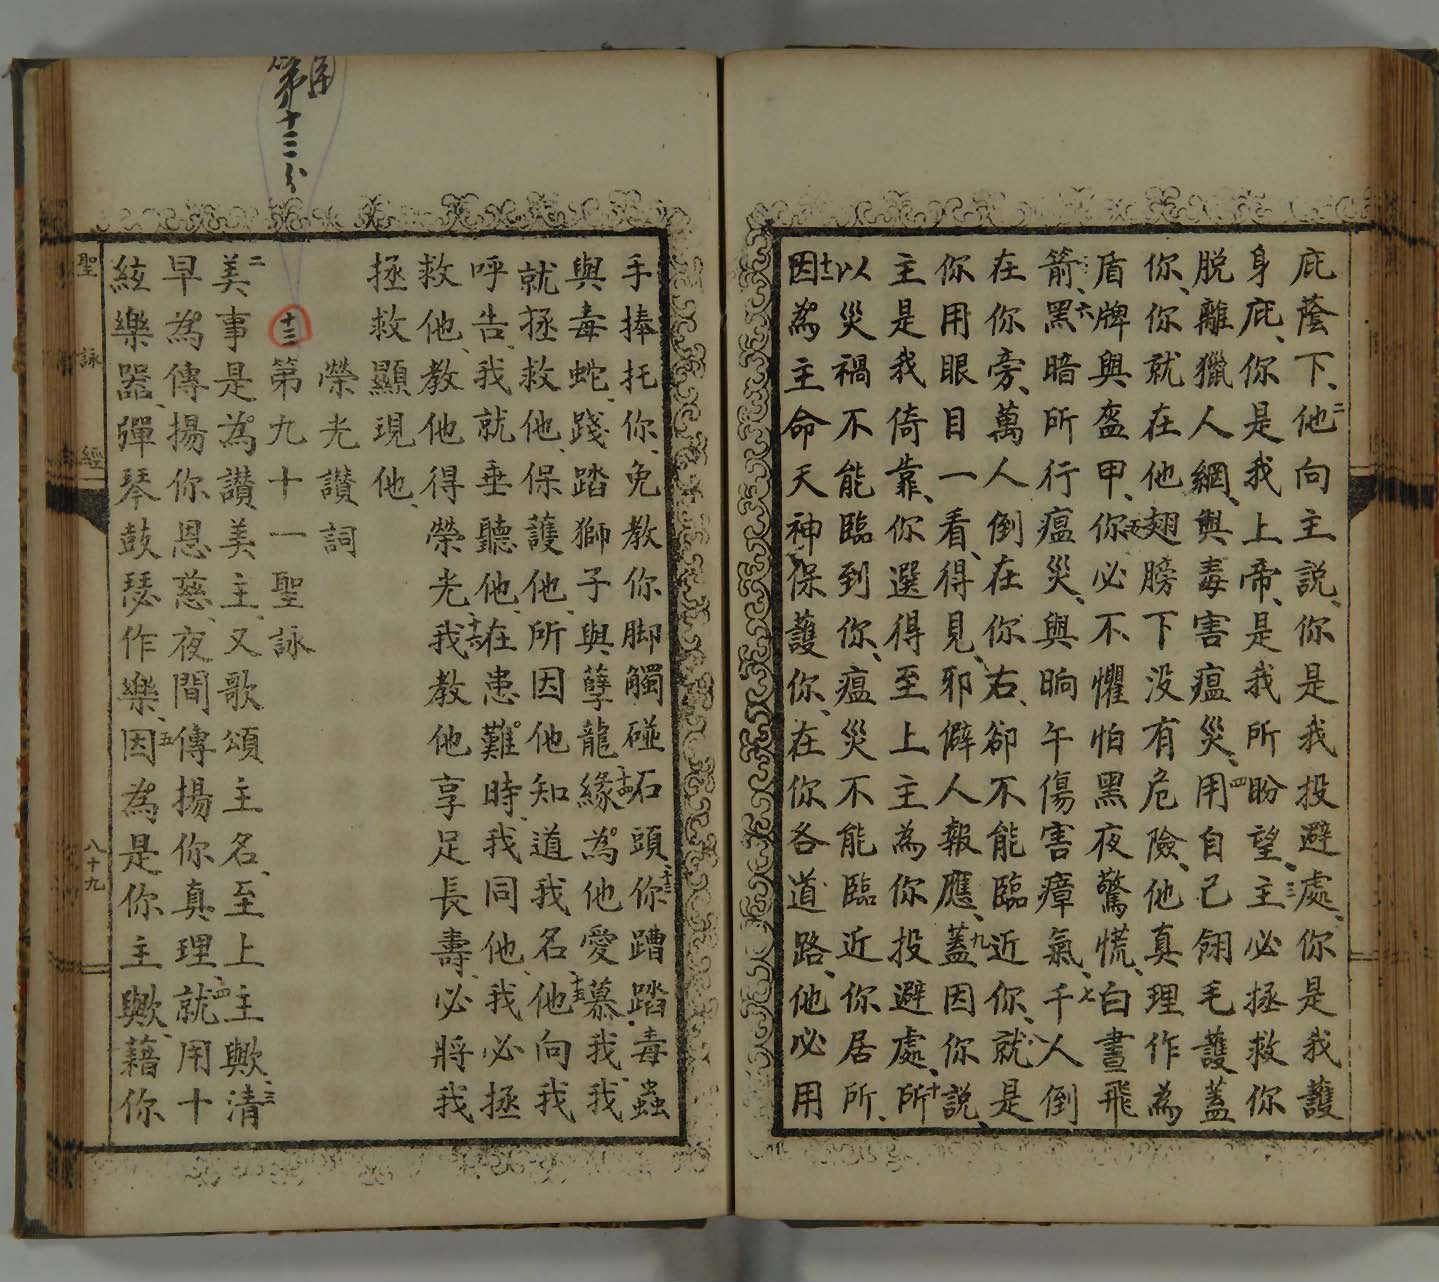 庇蔭下、他二向主說、你是我投避處、你是我護
身庇、你是我上帝、是我所盼望、三主必拯救你
脫離獵人網、與毒害瘟災、四用自己翎毛護、蓋
你、你就在他翅膀下没有危險、他真理作為
盾牌與盔甲、五你必不懼怕黑夜驚慌、白晝飛
箭、六黑暗所行瘟災、與晌午傷害瘴氣、七千人倒
在你旁、萬人倒在你右、卻不能臨近你、就是
你用眼目一看、得見、邪僻人報應、九蓋因你說、
主是我倚靠、你選得至上主為你投避處、十所
以災禍不能臨到你、瘟災不能臨近你居所、
十一因為主命天神保護你、在你各道路、他必用
手捧托你、免教你脚觸碰石頭、十三你蹧踏毒蟲
與毒蛇、踐踏獅子與孽龍、十四緣為他愛慕我、我
就拯救他、保護他、所因他知道我名、十五他向我
呼告、我就垂聽他、在患難時、我同他、我必拯
救他、教他得榮光、十六我教他享足長壽、必將我
拯救顯現他、
榮光讃詞
十三
第九十一聖詠
二美事是為讃美主、又歌頌主名、至上主歟、三清
早為傳揚你恩慈、夜間傳揚你真理、四就用十
絃樂器、彈琴鼓瑟作樂、五因為是你主歟、藉你
聖詠經
八十九
第十三分